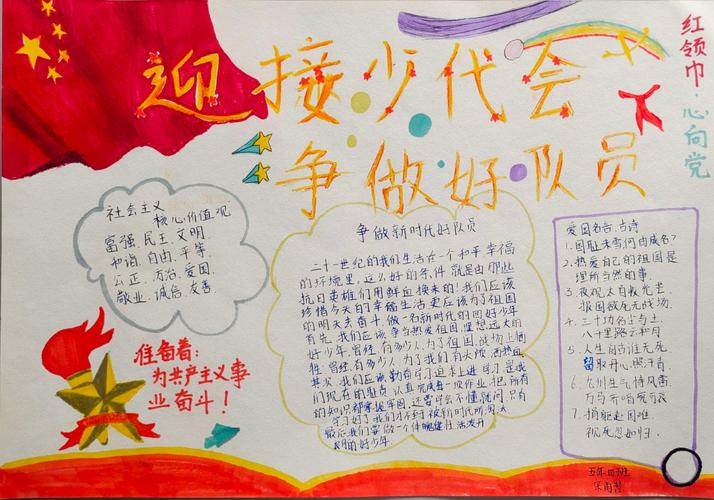 迎接少代会
争做好队员
红领巾·心向党
社会主义
核心价值观
富强 民主 文明
和谐 自由 平等
公正 法治 爱国
敬业 诚信 友善
准备着:
为共产主义事
业奋斗!
争做新时代好队员
二十一世纪的我们生活在一个和平幸福
的环境里。这么好的条件就是由那些
抗日英雄们用鲜血换来的!我们应该
珍惜今天的幸福生活更应该为了祖国
的明天去奋斗,做一名新时代的四好少年
首先,我们应该争当热爱祖国,理想远大的
好少年。曾经,有多少人,为了祖国,战场上牺
牲,曾经,有多少人,为了我们,
其次,我们应该勤奋学习追求上进,学习是我
们现在的职责,认真完成每一项作业,把所有
的知识都掌握牢固,还要学会不懂就问,只有
学习好了我们才不到被新时代所淘汰
最后我们要做一个体魄健
朗的好少年.
爱国名言、古诗
1.国耻未雪何由成名?
2.热爱自己的祖国是
理所当然的事.
3.夜视太白收光芒,
报国欲死无战场.
4.三十功名尘与土,
八千里路云和月
5.人生自古谁无死
留取丹心照汗青
6.九州生气恃风雷
万马齐喑究可哀
7.捐躯赴国难,
视死忽如归.
五年四班